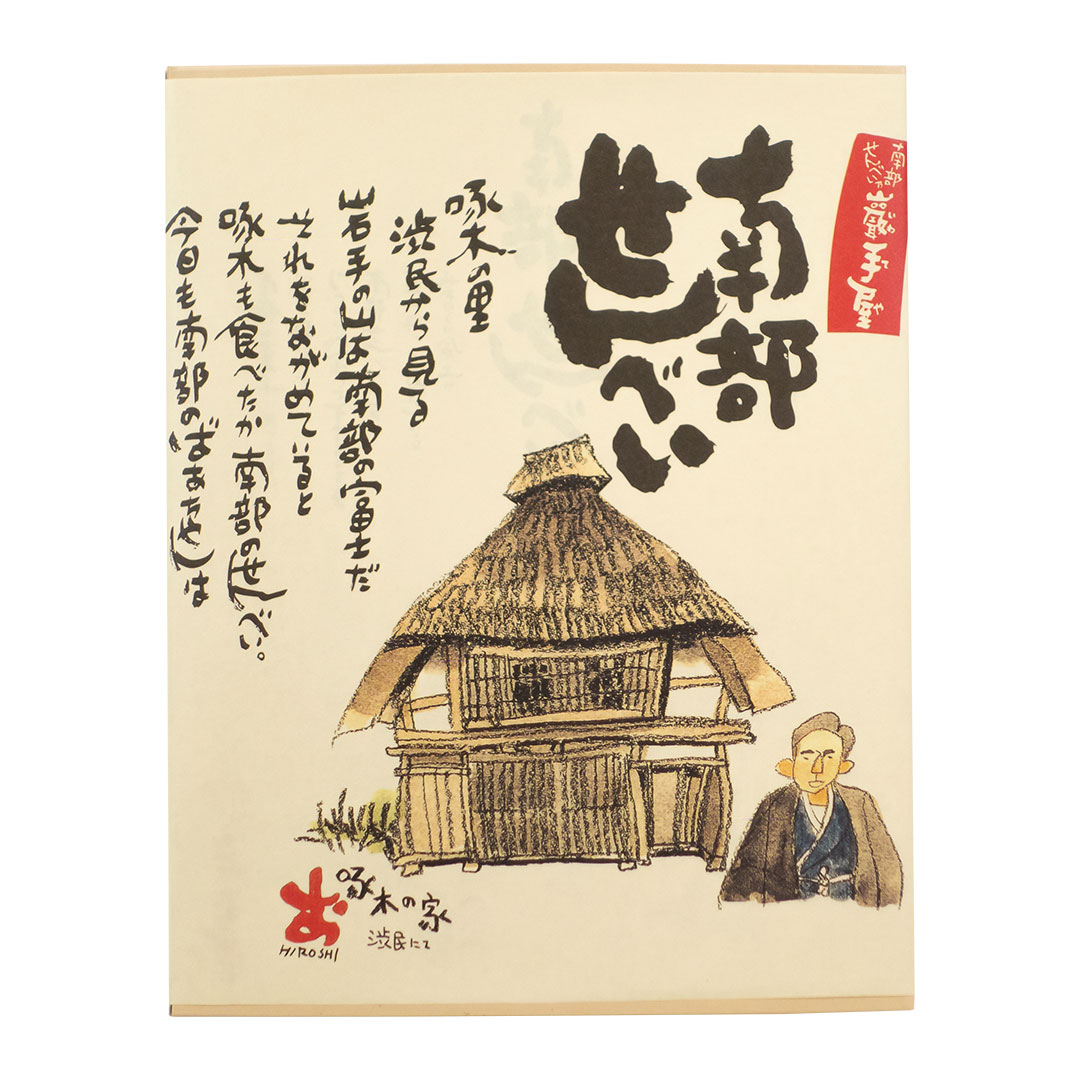 南部
せんべい
南部
せんべい
巖手屋
いわてや
啄木の里
渋民から見る
岩手の山は南部の富士だ
それをながめていると
啄木も食べたか南部のせんべい。
今日も南部のばあさんは
啄木の家
渋民にて
HIROSHI